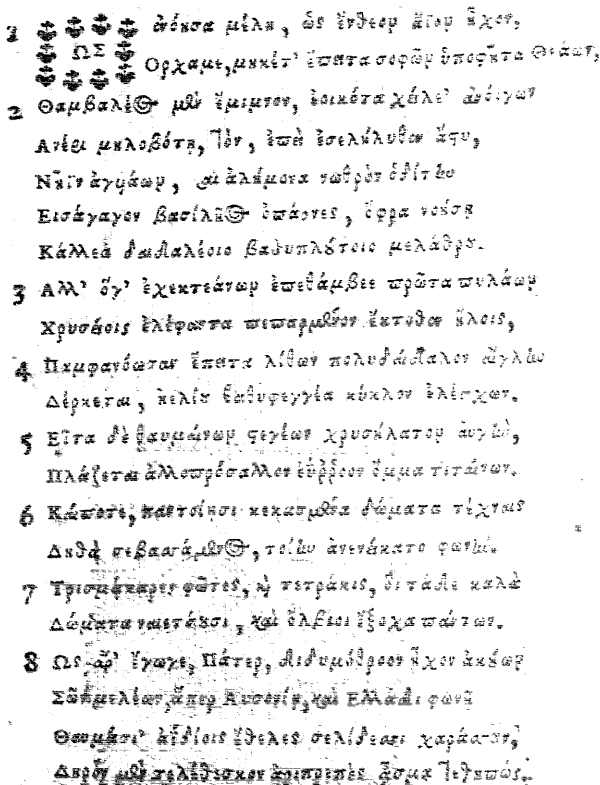 1 ΩΣ ἀνόησα μέλη, ὡς ἔνθεον ἄϊον ἦχον,
Ορχαμε, μηκέτ' ἔπειτα σοφῶν ὑποφῆτα Θεάων,
2 Θαμβαλέος μὲν ἔμιμνον, ἐοικότα χείλε' ἀνοίγων
Ανέρι μηλοβότῃ, τὸν, ἐπεὶ ἐσελήλυθεν ἄστυ,
Νηῒν ἀγυιάων, καὶ ἀλήμονα νωθρὸν ὁδίτην
Εἰσάγαγον βασιλῆος ὀπάονες, ὄφρα νοήσῃ
Κάλλεα δαιδαλέοιο βαθυπλούτοιο μελάθρου.
3 Αλλ' ὅγ' ἐχεκτεάνων ἐπεθάμβεε πρῶτα πυλάων
Χρυσείοις ἐλέφαντα πεπαρμένον ἔκτοθεν ἥλοις,
4 Παμφανόωσαν ἔπειτα λίθων πολυδαίδαλον αἴγλην
Δέρκεται, ἠελίου βαθυφεγγέα κύκλον ἐλέγχων.
5 Εἶτα δὲ θαυμαίνων τεγέων χρυσήλατον αὐγὴν,
Πλάζεται ἀλλοπρόσαλλον ἐΰρροον ὄμμα τιταίνων.
6 Κάποτε, παντοίῃσι κεκασμένα δώματα τέχναις
Δηθὰ σεβασσάμενος, τοίην ἀνενείκατο φωνήν.
7 Τρισμάκαρες φῶτες, καὶ τετράκις, οἳ τάδε καλὰ
Δώματα ναιετάουσι, καὶ ὄλβιοι ἔξοχα πάντων.
8 Ως ἄρ' ἔγωγε, Πάτερ, διδυμόθροον ἦχον ἀκούων
Σῶν μελέων, ἅπερ Αὐσονίῃ, καὶ Ἑλλάδι φωνῇ
Θαυμάσι' ἀϊδίοις ἔθελες σελίδεσσι χαράσσειν,
Δηρὸν μὲν τελέθεσκον ἀριπρεπὲς ᾆσμα τεθηπώς.